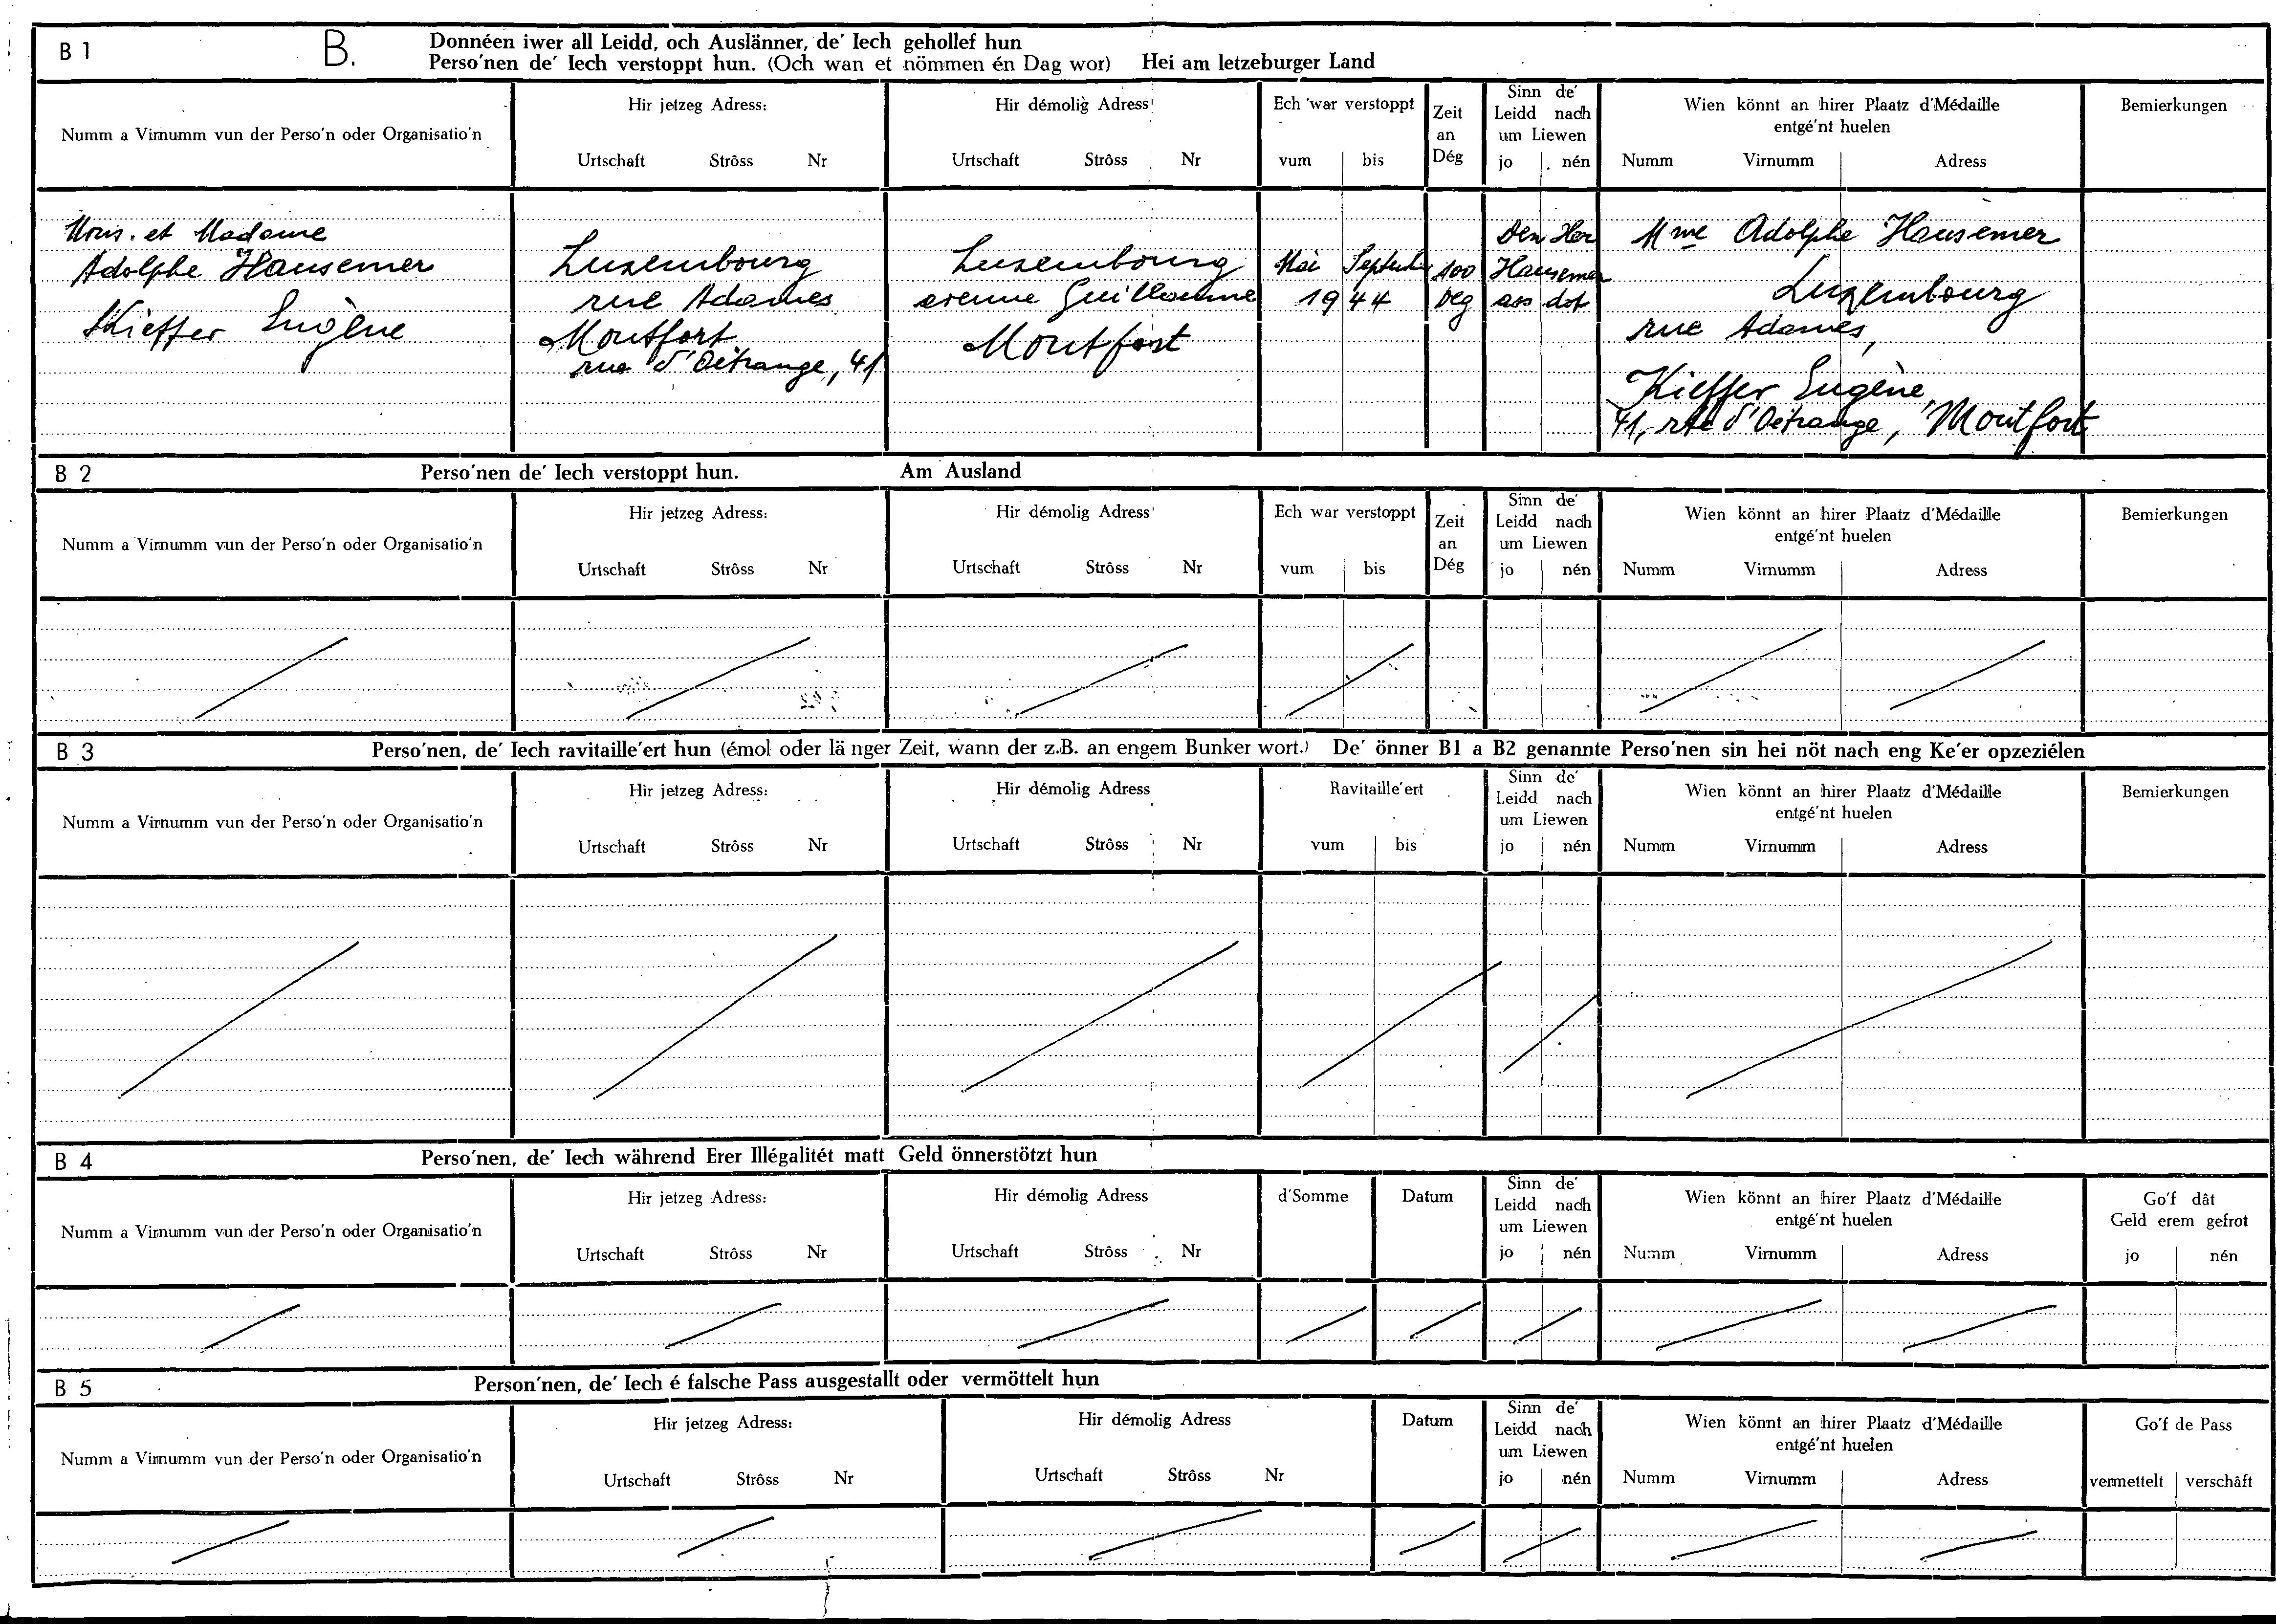 B 1 B. Donnéen iwer all Leidd, och Auslänner, de' Iech gehollef hun
Perso'nen de' Iech verstoppt hun. (Och wan et nömmen én Dag wor) Hei am letzeburger Land
Numm a Virnumm vun der Perso'n oder Organisatio'n
Hir jetzeg Adress:
Urtschaft Strôss Nr
Hir démolig Adress
Urtschaft Strôss Nr
Ech war verstoppt
vum bis
Zeit
an
Dég
Sinn de'
Leidd nach
um Liewen
jo nén
Wien könnt an hirer Plaatz d'Médaille
entgé'nt huelen
Numm Virnumm Adress
Bemierkungen
Mons. et Madame
Adolphe Hausemer
Kieffer Eugène
Luxembourg
rue Adames
Moutfort
rue d'Oetrange, 41
Luxembourg
avenue Guillaume
Moutfort
Mai
Septemb
1944
100
Deg
Den Her
Hausemer
ass dot
Mme Adolphe Hausemer
Luxembourg
rue Adames,
Kieffer Eugène
41, rte d'Oetrange, Moutfort
B 2 Perso'nen de' Iech verstoppt hun. Am Ausland
Numm a Virnumm vun der Perso'n oder Organisatio'n
Hir jetzeg Adress:
Urtschaft Strôss Nr
Hir démolig Adress
Urtschaft Strôss Nr
Ech war verstoppt
vum bis
Zeit
an
Dég
Sinn de'
Leidd nach
um Liewen
jo nén
Wien könnt an hirer Plaatz d'Médaille
entgé'nt huelen
Numm Virnumm Adress
Bemierkungen
B 3 Perso'nen, de' Iech ravitaille'ert hun (émol oder länger Zeit, wann der z.B. an engem Bunker wort.) De' önner B1 a B2 genannte Perso'nen sin hei nöt nach eng Ke'er opzeziélen
Numm a Virnumm vun der Perso'n oder Organisatio'n
Hir jetzeg Adress:
Urtschaft Strôss Nr
Hir démolig Adress
Urtschaft Strôss Nr
Ravitaille'ert
vum bis
Sinn de'
Leidd nach
um Liewen
jo nén
Wien könnt an hirer Plaatz d'Médaille
entgé'nt huelen
Numm Virnumm Adress
Bemierkungen
B 4 Perso'nen, de' Iech während Erer Illégalitét matt Geld önnerstötzt hun
Numm a Virnumm vun der Perso'n oder Organisatio'n
Hir jetzeg Adress:
Urtschaft Strôss Nr
Hir démolig Adress
Urtschaft Strôss Nr
d'Somme
Datum
Sinn de'
Leidd nach
um Liewen
jo nén
Wien könnt an hirer Plaatz d'Médaille
entgé'nt huelen
Numm Virnumm Adress
Go'f dât
Geld erem gefrot
jo nén
B 5 Person'nen, de' Iech é falsche Pass ausgestallt oder vermöttelt hun
Numm a Virnumm vun der Perso'n oder Organisatio'n
Hir jetzeg Adress:
Urtschaft Strôss Nr
Hir démolig Adress
Urtschaft Strôss Nr
Datum
Sinn de'
Leidd nach
um Liewen
jo nén
Wien könnt an hirer Plaatz d'Médaille
entgé'nt huelen
Numm Virnumm Adress
Go'f de Pass
vermettelt verschâft